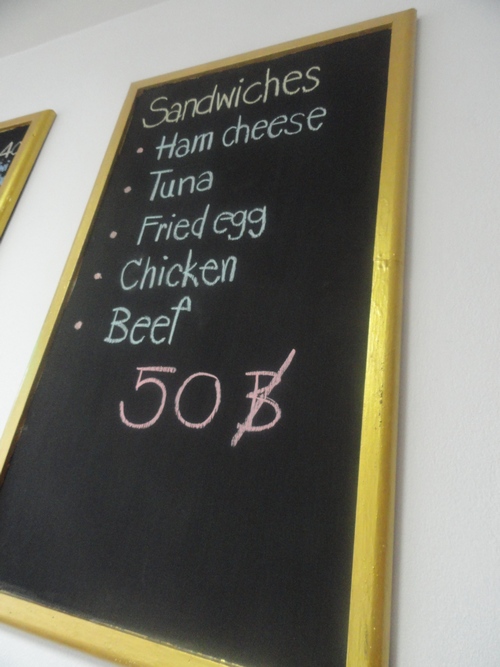 Sandwiches
• Ham cheese
• Tuna
• Fried egg
• Chicken
• Beef
50 ฿
40